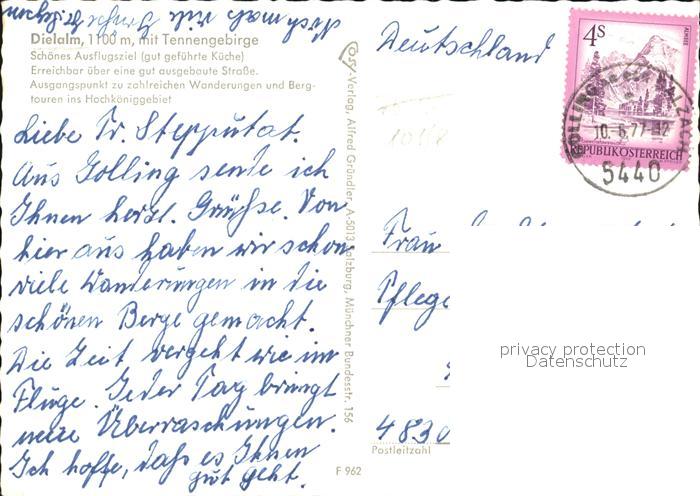 Dielalm, 1100 m, mit Tennengebirge
Schönes Ausflugsziel (gut geführte Küche)
Erreichbar über eine gut ausgebaute Straße.
Ausgangspunkt zu zahlreichen Wanderungen und Berg-
touren ins Hochköniggebiet
Liebe Fr. Stepputat.
Aus Golling sende ich
Ihnen herzl. Grüße. Von
hier aus haben wir schon
viele Wanderungen in die
schönen Berge gemacht.
Die Zeit vergeht wie im
Fluge. Jeder Tag bringt
neue Überraschungen.
Ich hoffe, daß es Ihnen
gut geht.
Cosy-Verlag, Alfred Gründler, A-5013 Salzburg, Münchner Bundesstr. 156
F 962
Deutschland
4S
ALMSEE
REPUBLIK ÖSTERREICH
GOLLING an der SALZACH
10.6.77-12
5440
Frau
Pflege
privacy protection
Datenschutz
4830
Postleitzahl